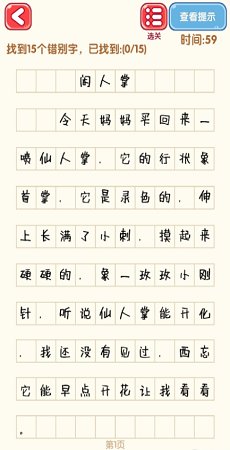 选关
查看提示
找到15个错别字，已找到:(0/15)
时间:59
闺人掌
今天妈妈平回来一
喷仙人掌．它的行状象
首掌．它是录色的．伸
上长满了小刺．摸起来
硬硬的．象一玫玫小刚
针．听说仙人掌能开化
．我还没有见过．西忘
它能早点开花让我看看
。
第1页